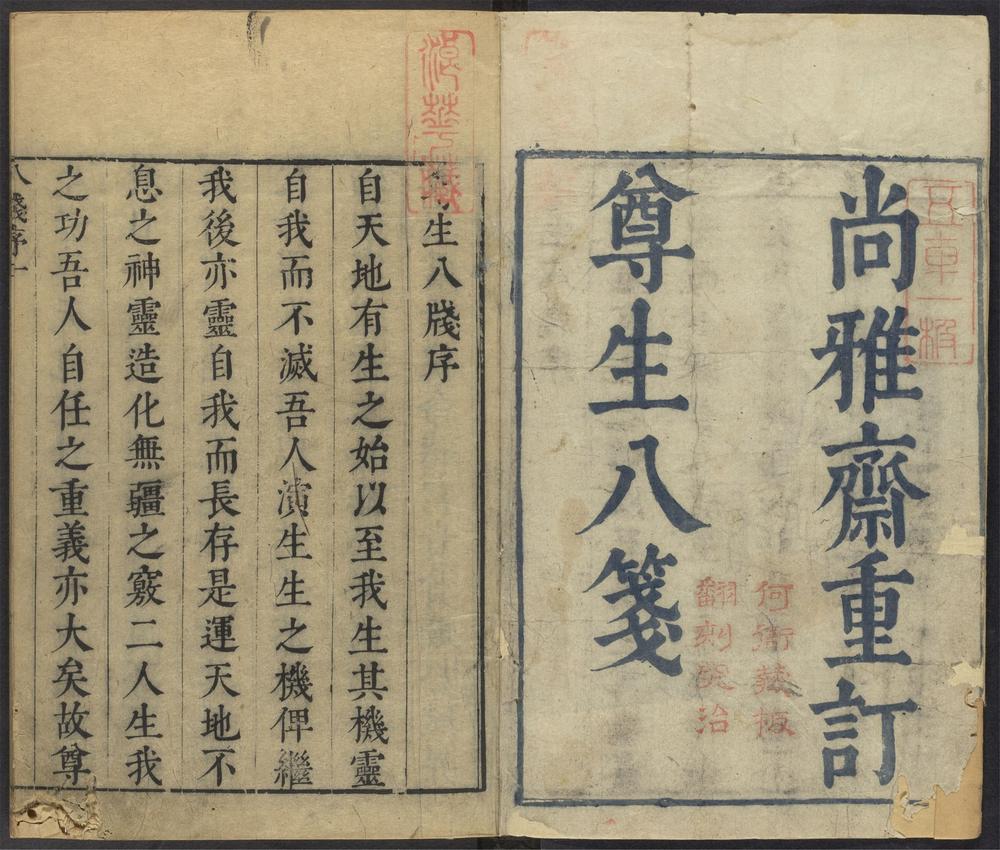 尚雅齋重訂
尊生八箋
何衙藏板
翻刻究治
生八牋序
自天地有生之始以至我生其機靈
自我而不滅吾人演生生之機俾繼
我後亦靈自我而長存是運天地不
息之神靈造化無疆之竅二人生我
之功吾人自任之重義亦大矣故尊
八牋序